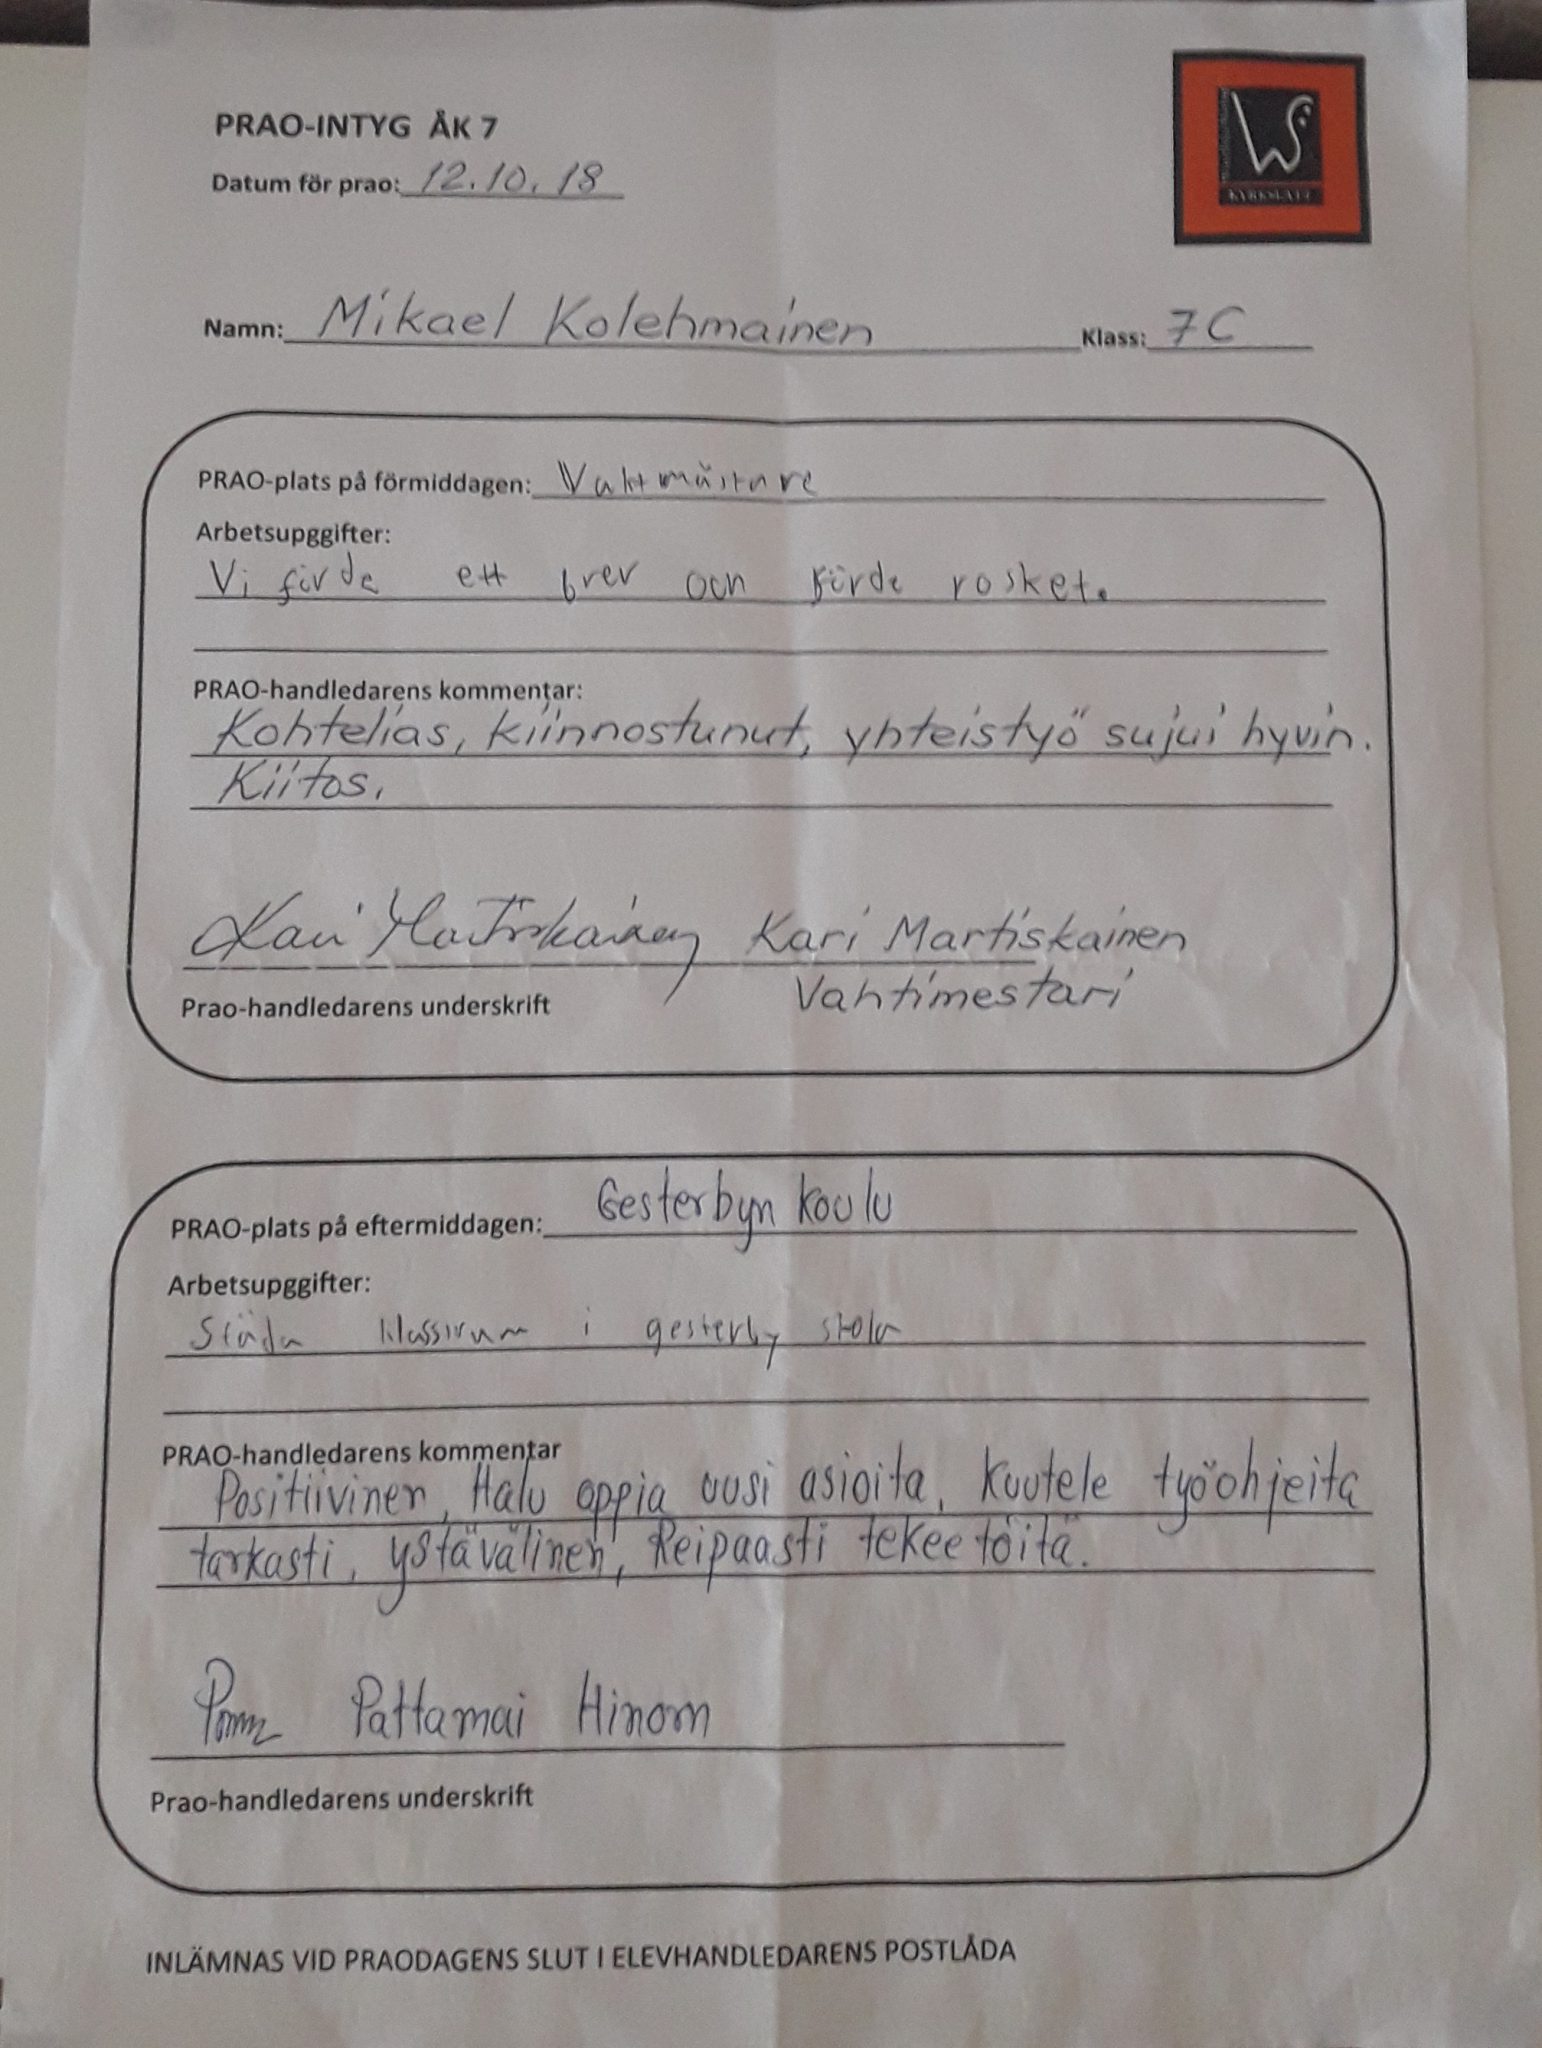 PRAO-INTYG ÅK 7
Datum för prao: 12.10.18
KYRKSLÄTT
Namn: Mikael Kolehmainen Klass: 7C
PRAO-plats på förmiddagen: Vaktmästare
Arbetsupggifter:
Vi förde ett brev och förde rosket.
PRAO-handledarens kommentar:
Kohtelias, kiinnostunut, yhteistyö sujui hyvin.
Kiitos.
Kari Martiskainen Kari Martiskainen
Prao-handledarens underskrift Vahtimestari
PRAO-plats på eftermiddagen: Gesterbyn koulu
Arbetsupggifter:
Städa klassrum i gesterby skola
PRAO-handledarens kommentar
Positiivinen, Halu oppia uusi asioita, Kuutele työohjeita
tarkasti, ystävälinen, Reipaasti tekee töitä.
Pattamai Hinom
Prao-handledarens underskrift
INLÄMNAS VID PRAODAGENS SLUT I ELEVHANDLEDARENS POSTLÅDA